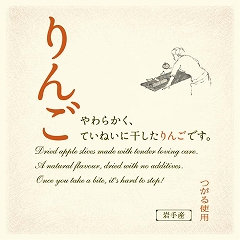 りんご
やわらかく、
ていねいに干したりんごです。
Dried apple slices made with tender loving care.
A natural flavour, dried with no additives.
Once you take a bite, it's hard to stop!
つがる使用
岩手産